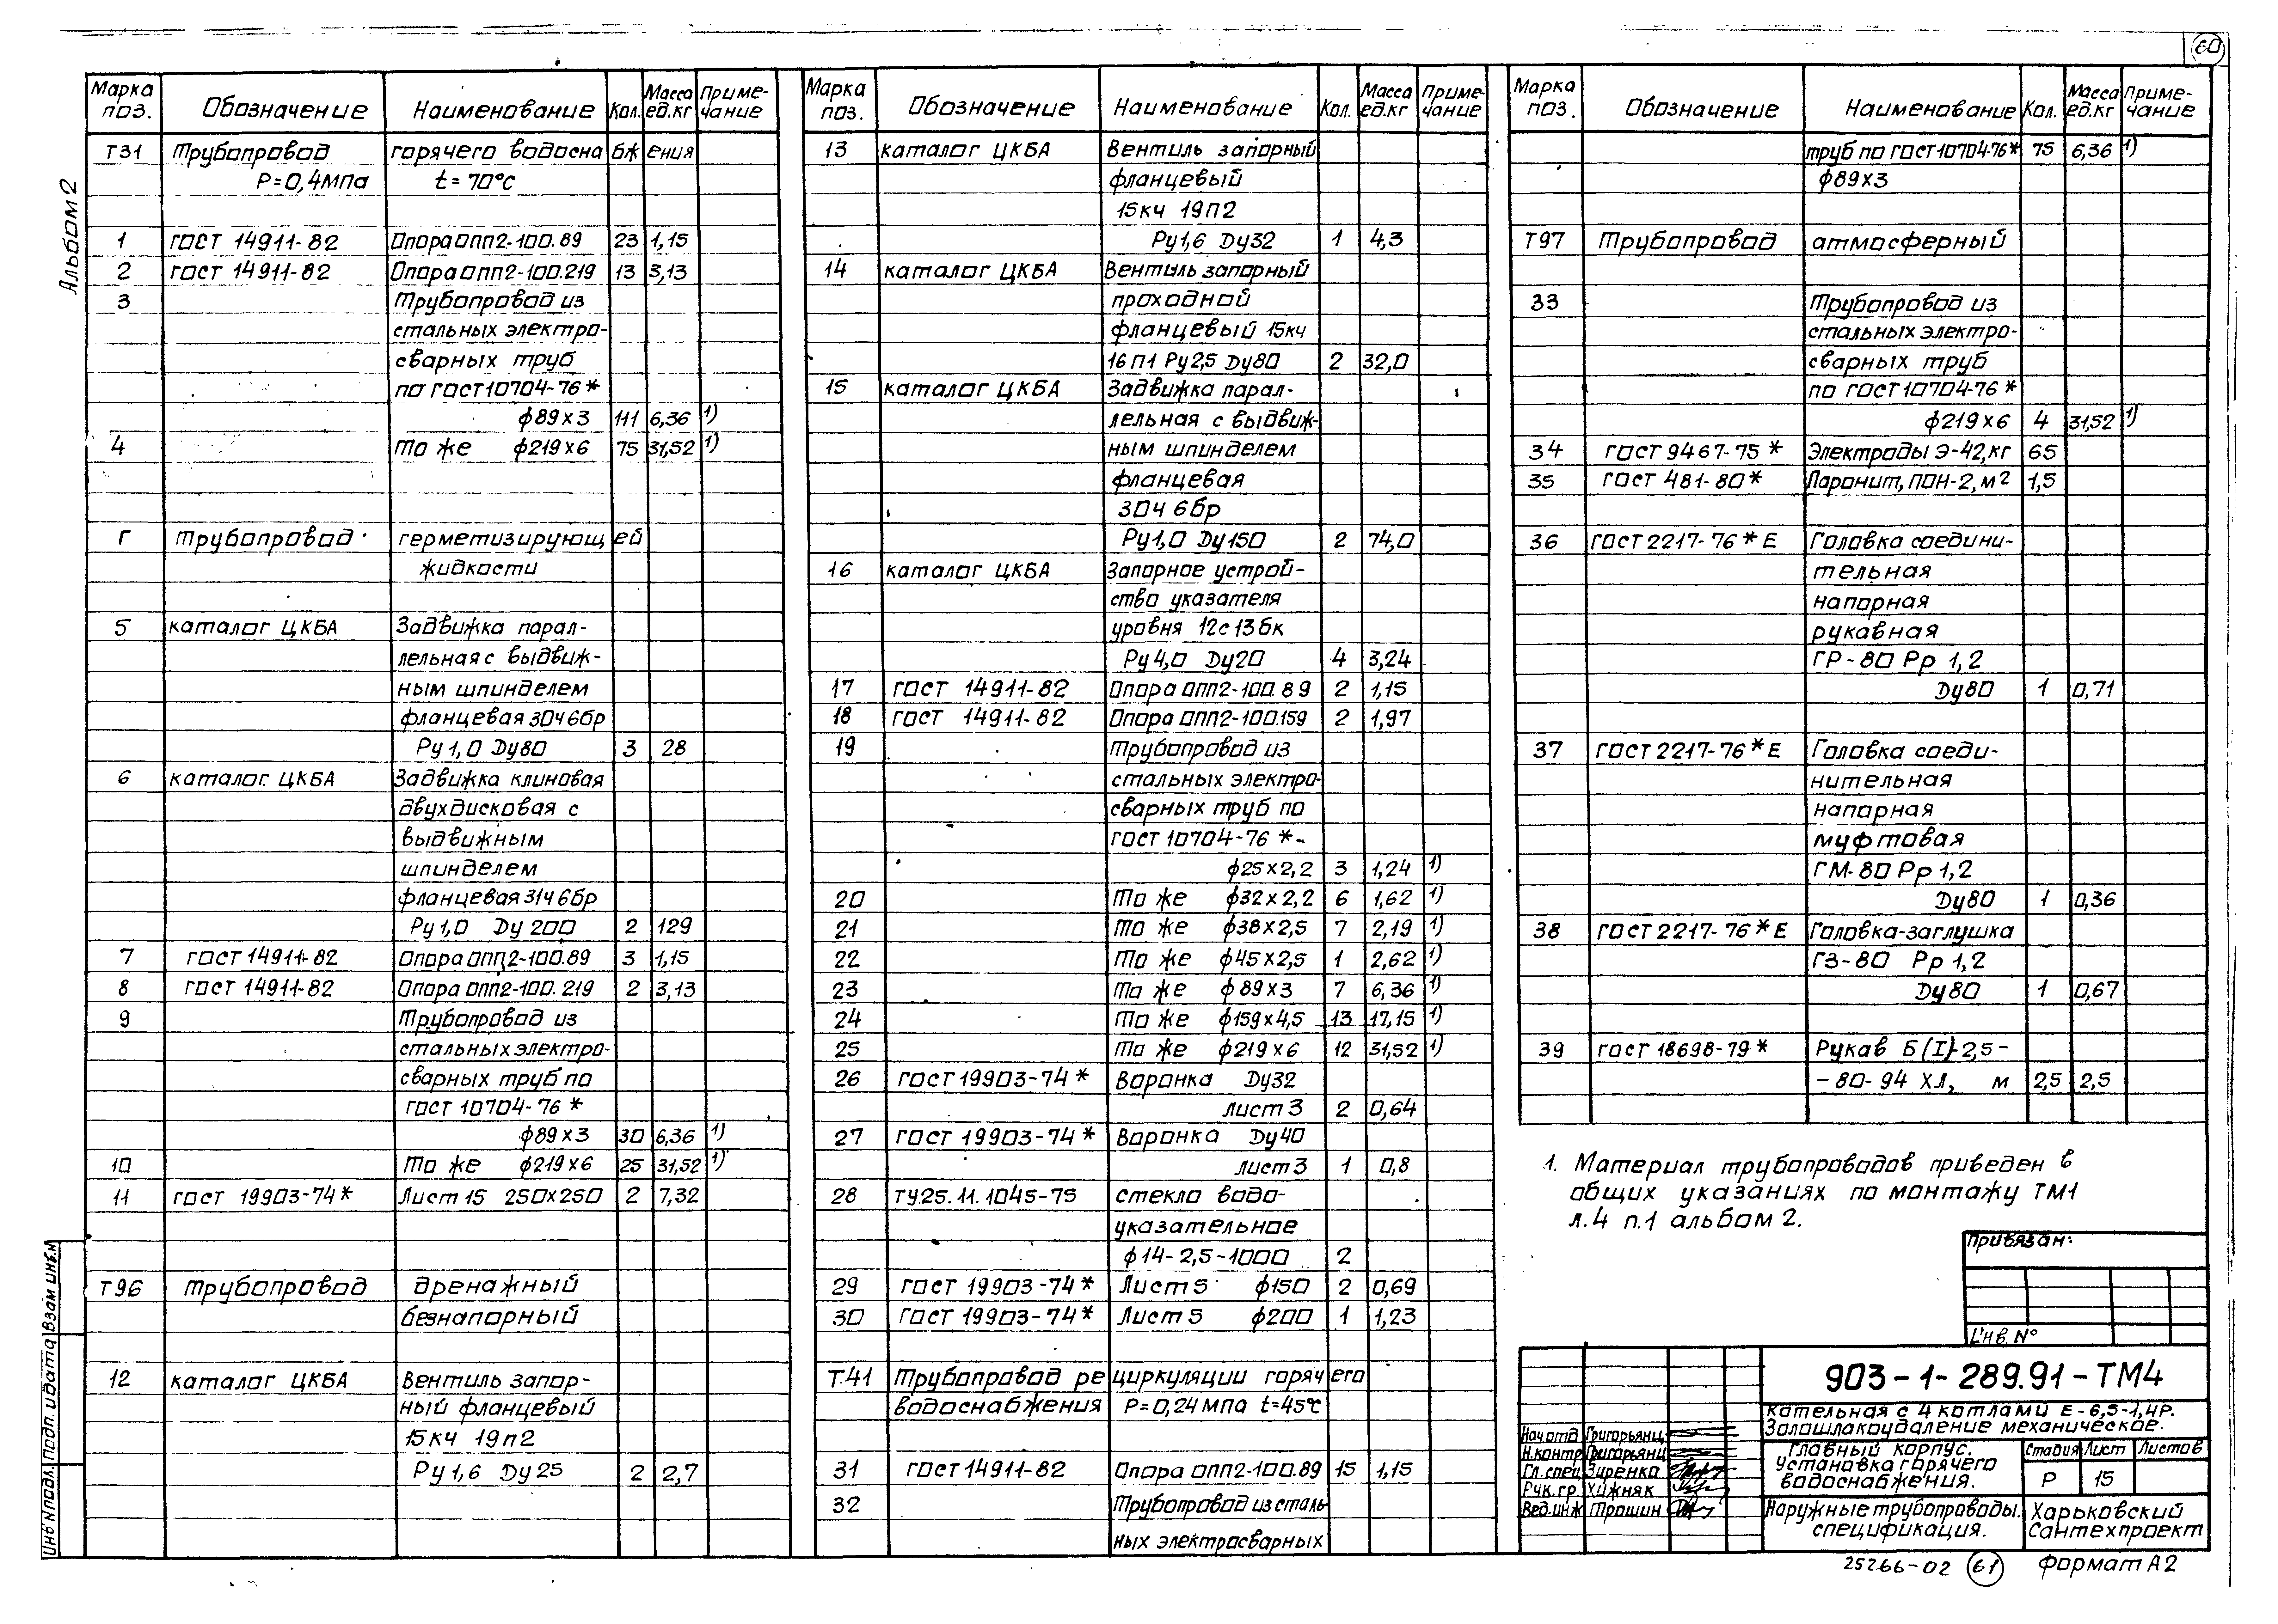 60
Альбом 2
Марка поз. Обозначение Наименование Кол. Масса ед.кг Примечание
Т31 Трубопровод горячего водоснабжения
Р=0,4мпа t=70°С
1 ГОСТ 14911-82 Опора ОПП2-100.89 23 1,15
2 ГОСТ 14911-82 Опора ОПП2-100.219 13 3,13
3 Трубопровод из
стальных электро-
сварных труб
по ГОСТ10704-76*
ф89х3 111 6,36 1)
4 То же ф219х6 75 31,52 1)
Г Трубопровод герметизирующей
жидкости
5 каталог ЦКБА Задвижка парал-
лельная с выдвиж-
ным шпинделем
фланцевая 30ч6бр
Ру1,0 Ду80 3 28
6 каталог ЦКБА Задвижка клиновая
двухдисковая с
выдвижным
шпинделем
фланцевая 31ч6бр
Ру1,0 Ду 200 2 129
7 ГОСТ 14911-82 Опора ОПП2-100.89 3 1,15
8 ГОСТ 14911-82 Опора ОПП2-100.219 2 3,13
9 Трубопровод из
стальных электро-
сварных труб по
ГОСТ 10704-76*
ф89х3 30 6,36 1)
10 То же ф219х6 25 31,52 1)
11 ГОСТ 19903-74* Лист 15 250х250 2 7,32
Т96 Трубопровод дренажный
безнапорный
12 каталог ЦКБА Вентиль запор-
ный фланцевый
15кч 19п2
Ру1,6 Ду25 2 2,7
Марка поз. Обозначение Наименование Кол. Масса ед.кг Примечание
13 каталог ЦКБА Вентиль запорный
фланцевый
15кч 19п2
Ру1,6 Ду32 1 4,3
14 каталог ЦКБА Вентиль запорный
проходной
фланцевый 15кч
16п1 Ру2,5 Ду80 2 32,0
15 каталог ЦКБА Задвижка парал-
лельная с выдвиж-
ным шпинделем
фланцевая
30ч 6бр
Ру1,0 Ду150 2 74,0
16 каталог ЦКБА Запорное устрой-
ство указателя
уровня 12с13бк
Ру4,0 Ду20 4 3,24
17 ГОСТ 14911-82 Опора ОПП2-100.89 2 1,15
18 ГОСТ 14911-82 Опора ОПП2-100.159 2 1,97
19 Трубопровод из
стальных электро-
сварных труб по
ГОСТ 10704-76*
ф25х2,2 3 1,24 1)
20 То же ф32х2,2 6 1,62 1)
21 То же ф38х2,5 7 2,19 1)
22 То же ф45х2,5 1 2,62 1)
23 То же ф89х3 7 6,36 1)
24 То же ф159х4,5 13 17,15 1)
25 То же ф219х6 12 31,52 1)
26 ГОСТ 19903-74* Воронка Ду32
Лист 3 2 0,64
27 ГОСТ 19903-74* Воронка Ду40
Лист 3 1 0,8
28 ТУ.25.11.1045-75 стекло водо-
указательное
ф14-2,5-1000 2
29 ГОСТ 19903-74* Лист 5 ф150 2 0,69
30 ГОСТ 19903-74* Лист 5 ф200 1 1,23
Т.41 Трубопровод рециркуляции горячего
водоснабжения Р=0,24мпа t=45°С
31 ГОСТ14911-82 Опора ОПП2-100.89 15 1,15
32 Трубопровод из сталь
ных электросварных
Марка поз. Обозначение Наименование Кол. Масса ед.кг Примечание
труб по ГОСТ10704-76* 75 6,36 1)
ф89х3
Т97 Трубопровод атмосферный
33 Трубопровод из
стальных электро-
сварных труб
по ГОСТ10704-76*
ф219х6 4 31,52 1)
34 ГОСТ 9467-75* Электроды Э-42,кг 65
35 ГОСТ 481-80* Паронит, ПОН-2, м² 1,5
36 ГОСТ2217-76*Е Головка соедини-
тельная
напорная
рукавная
ГР-80 Рр 1,2
Ду80 1 0,71
37 ГОСТ2217-76*Е Головка соеди-
нительная
напорная
муфтовая
ГМ-80 Рр 1,2
Ду80 1 0,36
38 ГОСТ2217-76*Е Головка-заглушка
ГЗ-80 Рр 1,2
Ду80 1 0,67
39 ГОСТ 18698-79* Рукав Б(I)-2,5-
-80-94 ХЛ, м 2,5 2,5
1. Материал трубопроводов приведен в
общих указаниях по монтажу ТМ1
л.4 п.1 альбом 2.
Привязан:
Инв.N°
903-1-289.91-ТМ4
Котельная с 4 котлами Е-6,5-1,4Р.
Золошлакоудаление механическое.
Главный корпус.
Установка горячего
водоснабжения.
Стадия Лист Листов
Р 15
Нач отд Григорьянц
Н.контр Григорьянц
Гл.спец Зиренко
Рук.гр Хижняк
Вед.инж Трошин
Наружные трубопроводы.
спецификация.
Харьковский
Сантехпроект
25266-02 61 формат А2
Инв N подл. Подп. и дата Взам инв.N